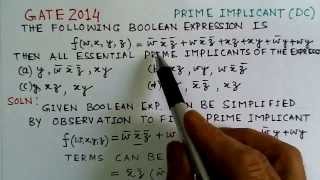 GATE 2014 PRIME IMPLICANT (DC)
THE FOLLOWING BOOLEAN EXPRESSION IS
f(w,x,y,z) = w̅ x̅ z̅ + w x̅ z̅ + xz + xy + w̅y + wy
THEN ALL ESSENTIAL PRIME IMPLICANTS OF THE EXPRESS
(a) y, w̅ x̅ z̅, xy xz, wy, w x̅ z̅
(c) y, xz, xy xz, x̅ z̅
SOLN: GIVEN BOOLEAN EXP. CAN BE SIMPLIFIED
BY OBSERVATION TO FIND PRIME IMPLICANT
f(w,x,y,z) = w̅ x̅ z̅ + w y + wy
TERMS CAN BE
= x̅ z̅